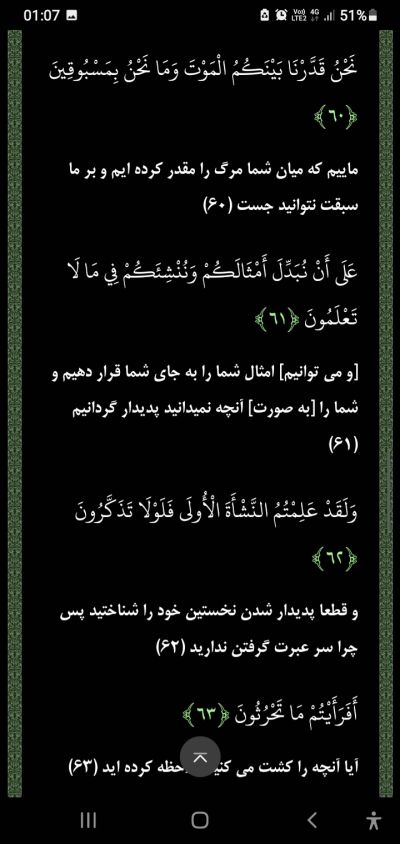 01:07 Vo)) LTE2 4G 51%
نَحْنُ قَدَّرْنَا بَيْنَكُمُ الْمَوْتَ وَمَا نَحْنُ بِمَسْبُوقِينَ
﴿۶۰﴾
ماییم که میان شما مرگ را مقدر کرده ایم و بر ما
سبقت نتوانید جست (۶۰)
عَلَى أَنْ نُبَدِّلَ أَمْثَالَكُمْ وَنُنْشِئَكُمْ فِي مَا لَا
تَعْلَمُونَ ﴿۶۱﴾
[و می توانیم] امثال شما را به جای شما قرار دهیم و
شما را [به صورت] آنچه نمیدانید پدیدار گردانیم
(۶۱)
وَلَقَدْ عَلِمْتُمُ النَّشْأَةَ الْأُولَى فَلَوْلَا تَذَكَّرُونَ
﴿۶۲﴾
و قطعا پدیدار شدن نخستین خود را شناختید پس
چرا سر عبرت گرفتن ندارید (۶۲)
أَفَرَأَيْتُمْ مَا تَحْرُثُونَ ﴿۶۳﴾
آیا آنچه را کشت می کنید حظه کرده اید (۶۳)